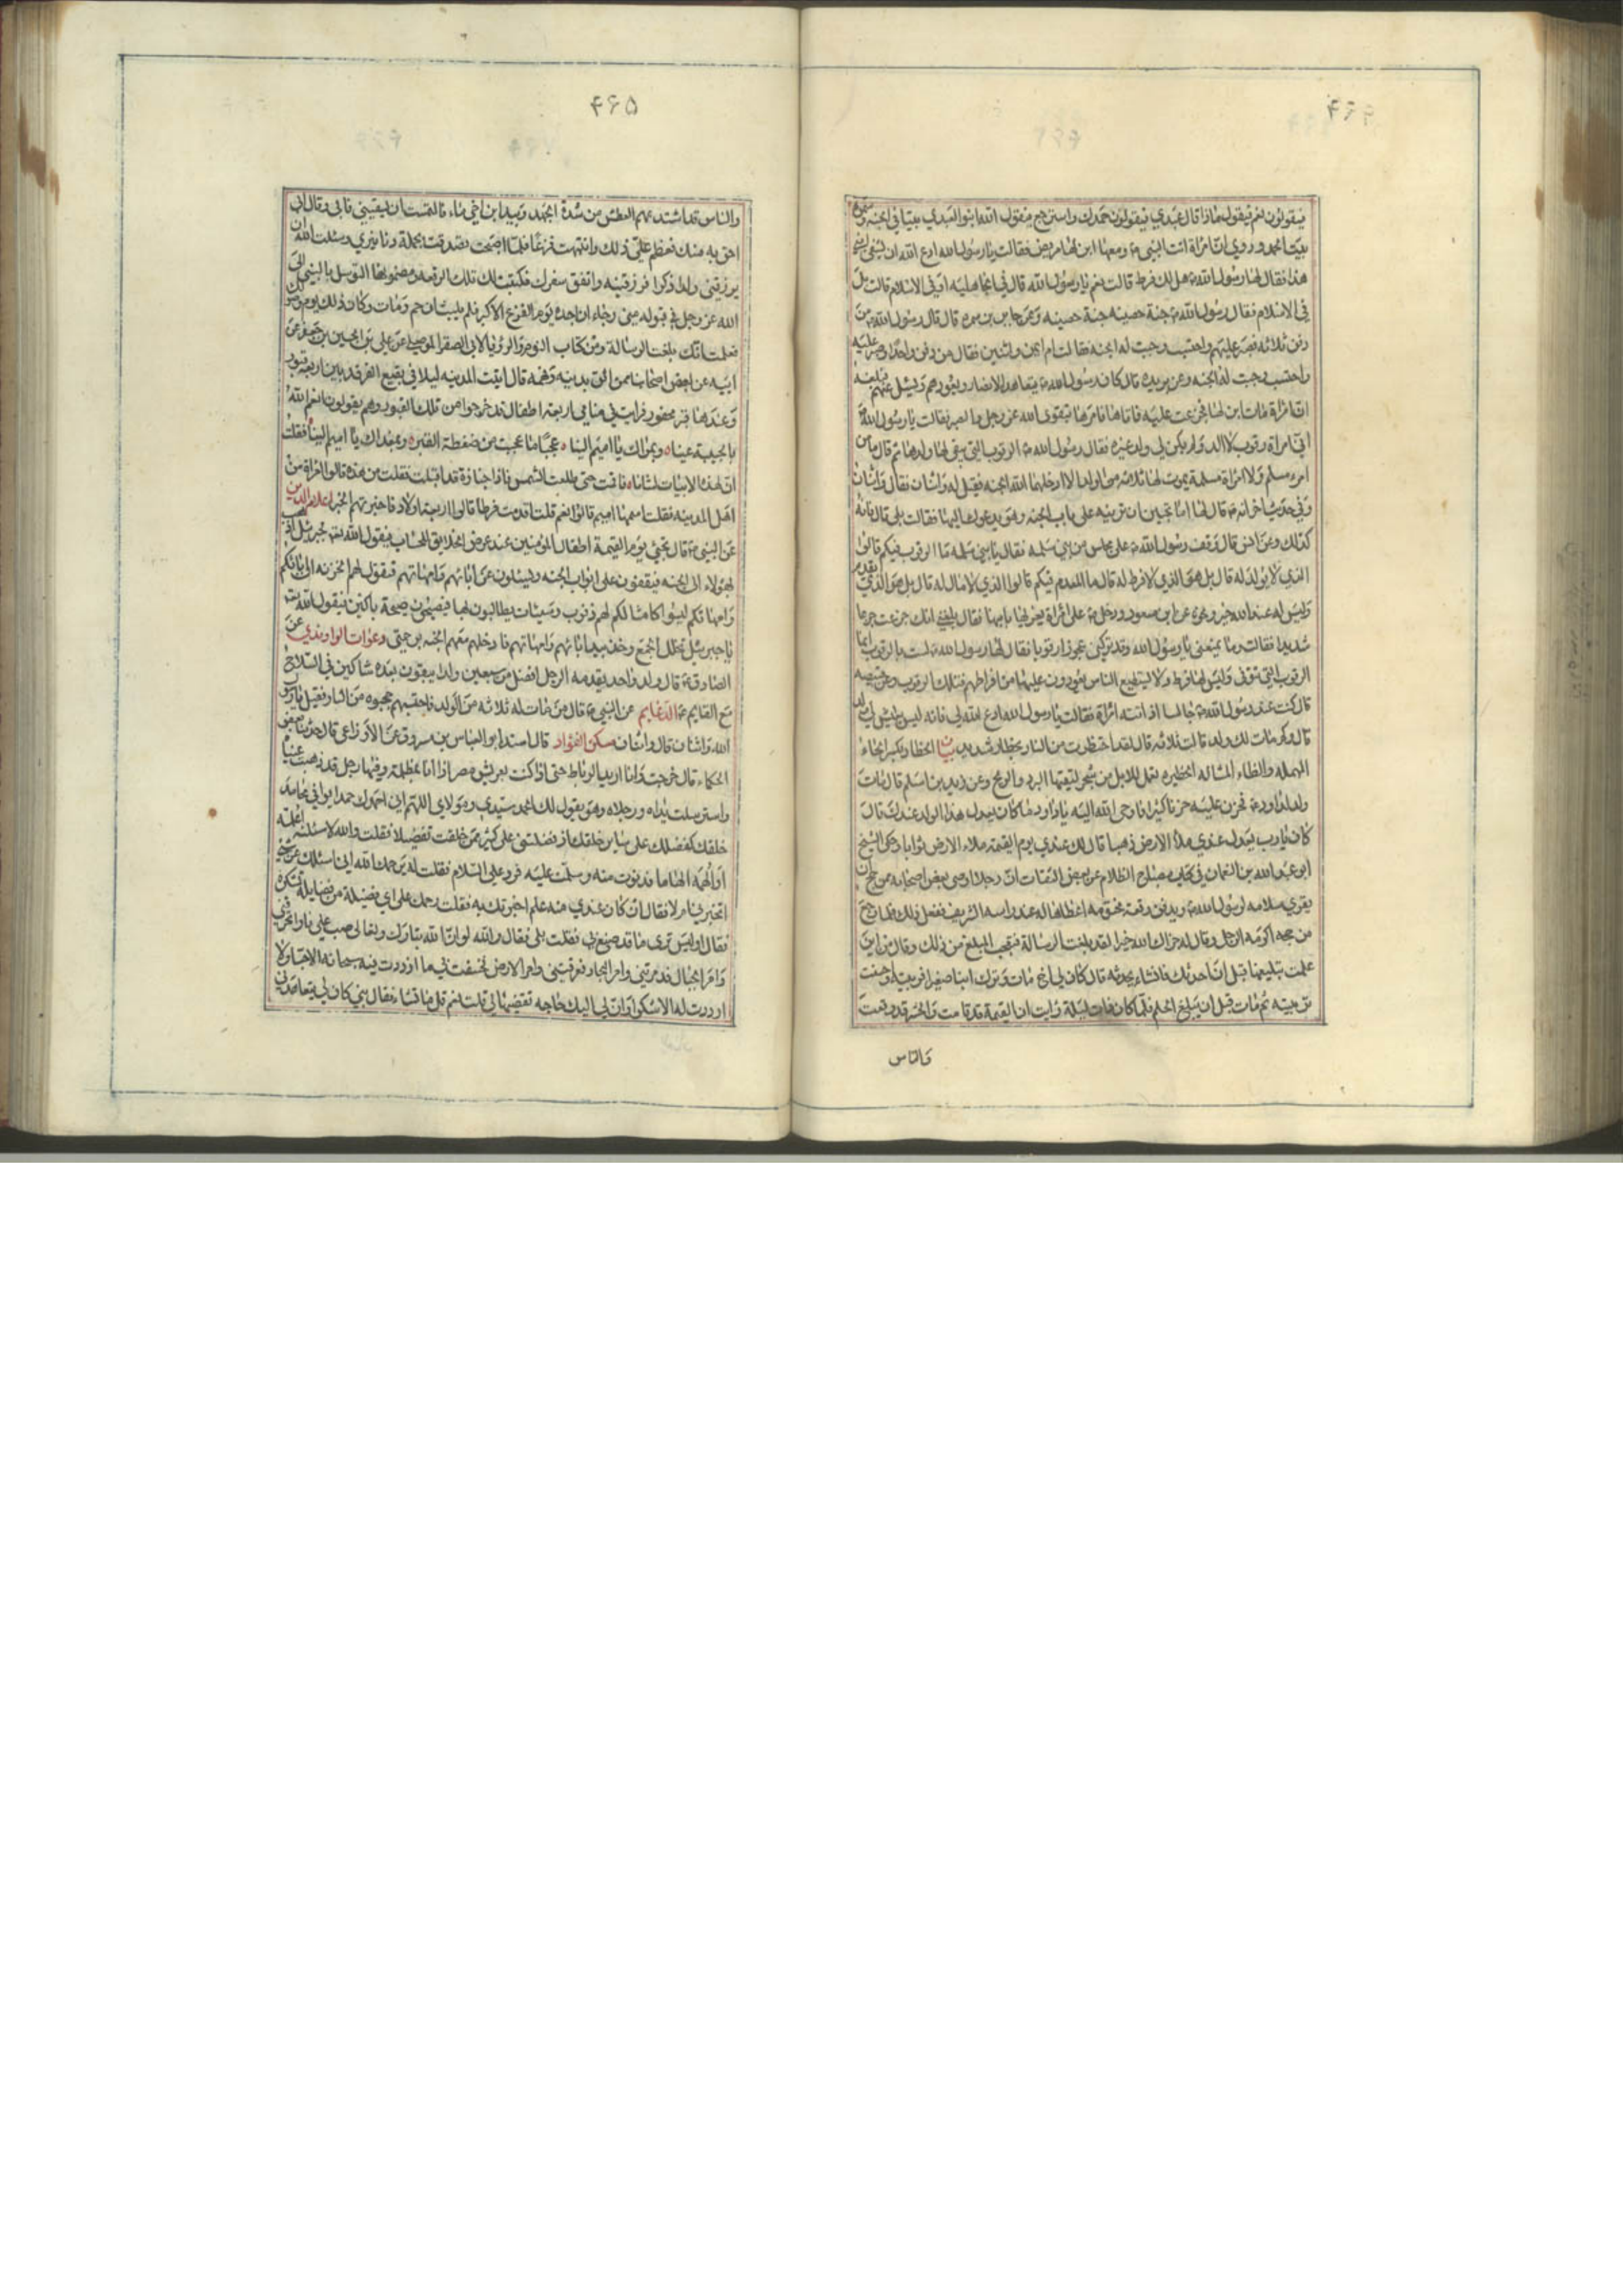 ۴۶۴
فيقولون نعم فيقول ماذا قال عبدي فيقولون حمدك واسترجع فيقول الله ابنوا لعبدي بيتا في الجنة وسموه
بيت الحمد وروي ان امراة اتت النبي ص ومعها ابن لها مريض فقالت يا رسول الله ادع الله ان يشفي ابني
هذا فقال لها رسول الله ص هل لك فرط قالت نعم يا رسول الله قال في الجاهلية او في الاسلام قالت بل
في الاسلام فقال رسول الله ص جنة حصينة جنة حصينة وعن جابر بن سمرة قال قال رسول الله ص من
دفن ثلاثة فصبر عليهم واحتسب وجبت له الجنة فقالت ام ايمن واثنين فقال من دفن واحدا وصبر عليه
واحتسب وجبت له الجنة وعن بريدة قال كان رسول الله ص يتعاهد الانصار ويعودهم ويسئل عنهم فبلغه
ان امراة مات ابن لها فجزعت عليه فاتاها فامرها بتقوى الله عز وجل والصبر فقالت يا رسول الله
اني امراة رقوب لا الد ولم يكن لي ولد غيره فقال رسول الله ص الرقوب التي يبقى لها ولدها ثم قال ما من
امرء مسلم ولا امراة مسلمة يموت لها ثلاثة من الولد الا ادخلهما الله الجنة فقيل له واثنان فقال واثنان
وفي حديث اخر انه ص قال لها اما تحبين ان ترينه على باب الجنة وهو يدعوك اليها فقالت بلى قال فانه
كذلك وعن انس قال وقف رسول الله ص على مجلس من بني سلمة فقال يا بني سلمة ما الرقوب فيكم قالوا
الذي لا يولد له قال بل هو الذي لا فرط له قال ما المعدم فيكم قالوا الذي لا مال له قال بل هو الذي يقدم
وليس له عند الله خير وعن ابن مسعود ودخل ص على امراة يعزيها بابنها فقال بلغني انك جزعت جزعا
شديدا فقالت وما يمنعني يا رسول الله وقد تركني عجوزا رقوبا فقال لها رسول الله ص لست بالرقوب انما
الرقوب التي تتوفى وليس لها فرط ولا يستطيع الناس يعودون عليها من افراطهم فتلك الرقوب وعن قبيصة
قال كنت عند رسول الله ص جالسا اذ اتته امراة فقالت يا رسول الله ادع الله لي فانه ليس يعيش لي ولد
قال وكم مات لك ولد قالت ثلاثة قال لقد احتظرت من النار بحظار شديد بيان الحظار بكسر الحاء
المهملة والظاء المشالة الحظيرة تعمل للابل من شجر لتقيها البرد والريح وعن زيد بن اسلم قال مات
ولد لداود ع فحزن عليه حزنا كثيرا فاوحى الله اليه يا داود ما كان يعدل هذا الولد عندك قال
كان يا رب يعدل عندي ملا الارض ذهبا قال لك عندي يوم القيمة ملاء الارض ثوابا وحكى الشيخ
ابو عبد الله بن النعمان في كتاب مصباح الظلام عن بعض الثقات ان رجلا اوصى بعض اصحابه ممن حج ان
يقرى سلامه لرسول الله ص ويدفن رقعة مختومة اعطاها له عند راسه الشريف ففعل ذلك فلما رجع
من حجه اكرمه الرجل وقال له جزاك الله خيرا لقد بلغت الرسالة فتعجب المبلغ من ذلك وقال من اين
علمت بتبليغها قبل ان احدثك فانشاء يحدثه قال كان لي اخ مات وترك ابنا صغيرا فربيته واحسنت
تربيته ثم مات قبل ان يبلغ الحلم فلما كان ذات ليلة رايت ان القيمة قد قامت والحشر قد وقعت
والناس
۴۶۵
والناس قد اشتد بهم العطش من شدة الجهد وبيد ابن اخي ماء فالتمست ان يسقيني فابى وقال ابي
احق به منك فعظم علي ذلك وانتبهت فزعا فلما اصبحت تصدقت بجملة دنانير وسئلت الله ان
يرزقني ولدا ذكرا فرزقنيه واتفق سفرك فكتبت لك تلك الرقعة ومضمونها التوسل بالنبي الى
الله عز وجل في قبوله مني رجاء ان اجده يوم الفزع الاكبر فلم يلبث ان حم ومات وكان ذلك يوم وصولك
فعلمت انك بلغت الرسالة ومن كتاب النوم والرؤيا لابي الصقر الموصلي عن علي بن الحسين بن جعفر عن
ابيه عن بعض اصحابنا ممن اثق بدينه وفهمه قال اتيت المدينة ليلا في بقيع الغرقد بين اربعة قبور
وعندها قبر محفور فرايت في منامي اربعة اطفال قد خرجوا من تلك القبور وهم يقولون انعم الله
بالحبيبة عينا ٥ وبمراك يا اميم الينا ٥ عجبا ما عجبت من ضغطة القبر ٥ وبغداك يا اميم الينا فقلت
ان لهذه الابيات لشانا فاقمت حتى طلعت الشمس فاذا جنازة قد اقبلت فقلت من هذه قالوا امراة من
اهل المدينة فقلت اسمها اميم قالوا نعم قلت اقدمت فرطا قالوا اربعة اولاد فاخبرتهم الخبر اعلام الدين
عن النبي ص قال تجيئ يوم القيمة اطفال المؤمنين عند عرض الخلايق للحساب فيقول الله تعالى لجبرئيل اذهب
بهؤلاء الى الجنة فيقفون على ابواب الجنة ويسئلون عن ابائهم وامهاتهم فيقول لهم الخزنة ان اباءكم
وامهاتكم ليسوا كامثالكم لهم ذنوب وسيئات يطالبون بها فيصيحون صيحة باكين فيقول الله تعالى
يا جبرئيل تخلل الجمع وخذ بيد ابائهم وامهاتهم فادخلهم معهم الجنة برحمتي دعوات الراوندي عن
الصادق ع قال ولد واحد يقدمه الرجل افضل من سبعين ولدا يبقون بعده شاكين في السلاح
مع القايم ع الدعايم عن النبي ص قال من مات له ثلاثة من الولد فاحتسبهم حجبوه من النار فقيل يا رسول
الله واثنان قال واثنان مسكن الفؤاد قال اسند ابو العباس بن مسروق عن الاوزاعي قال حدثنا بعض
الحكماء قال خرجت وانا اريد الرباط حتى اذا كنت بعريش مصر اذا انا بمظلة وفيها رجل قد ذهبت عيناه
واسترسلت يداه ورجلاه وهو يقول لك الحمد سيدي ومولاي اللهم اني احمدك حمدا يوافي محامد
خلقك كفضلك على سائر خلقك اذ فضلتني على كثير ممن خلقت تفضيلا فقلت والله لاسئلنه اعلمه
او الهمه الهاما فدنوت منه وسلمت عليه فرد علي السلام فقلت له رحمك الله اني اسئلك عن شيئ
اتخبرني ام لا فقال ان كان عندي منه علم اخبرتك به فقلت رحمك على اي فضيلة من فضايله تشكره
فقال اوليس ترى ما قد صنع بي فقلت بلى فقال والله لو ان الله تبارك وتعالى صب علي نارا تحرقني
وامر الجبال فدمرتني وامر البحار فغرقتني وامر الارض فخسفت بي ما ازددت فيه سبحانه الا حبا ولا
ازددت له الا شكرا وان لي اليك حاجة تقضيها لي قلت نعم قل ما تشاء فقال بني كان لي يتعاهدني